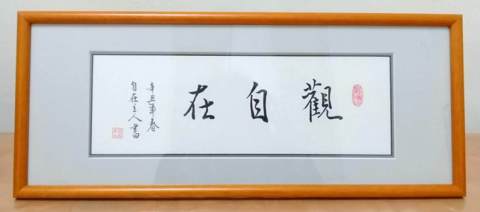 觀自在
辛丑年春
自在主人書